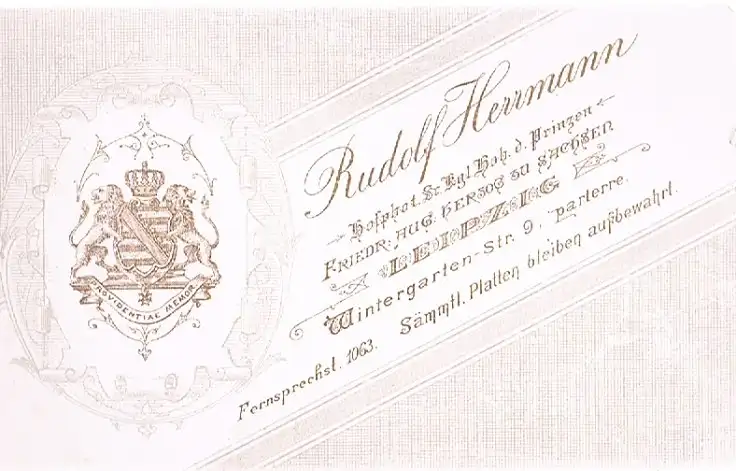 Rudolf Herrmann
Hofphot. Sr. Kgl. Hoh. d. Prinzen
FRIEDR. AUG. HERZOG ZU SACHSEN
LEIPZIG
Wintergarten-Str. 9, parterre.
Fernsprechst. 1063. Sämmtl. Platten bleiben aufbewahrt.
PROVIDENTIAE MEMOR